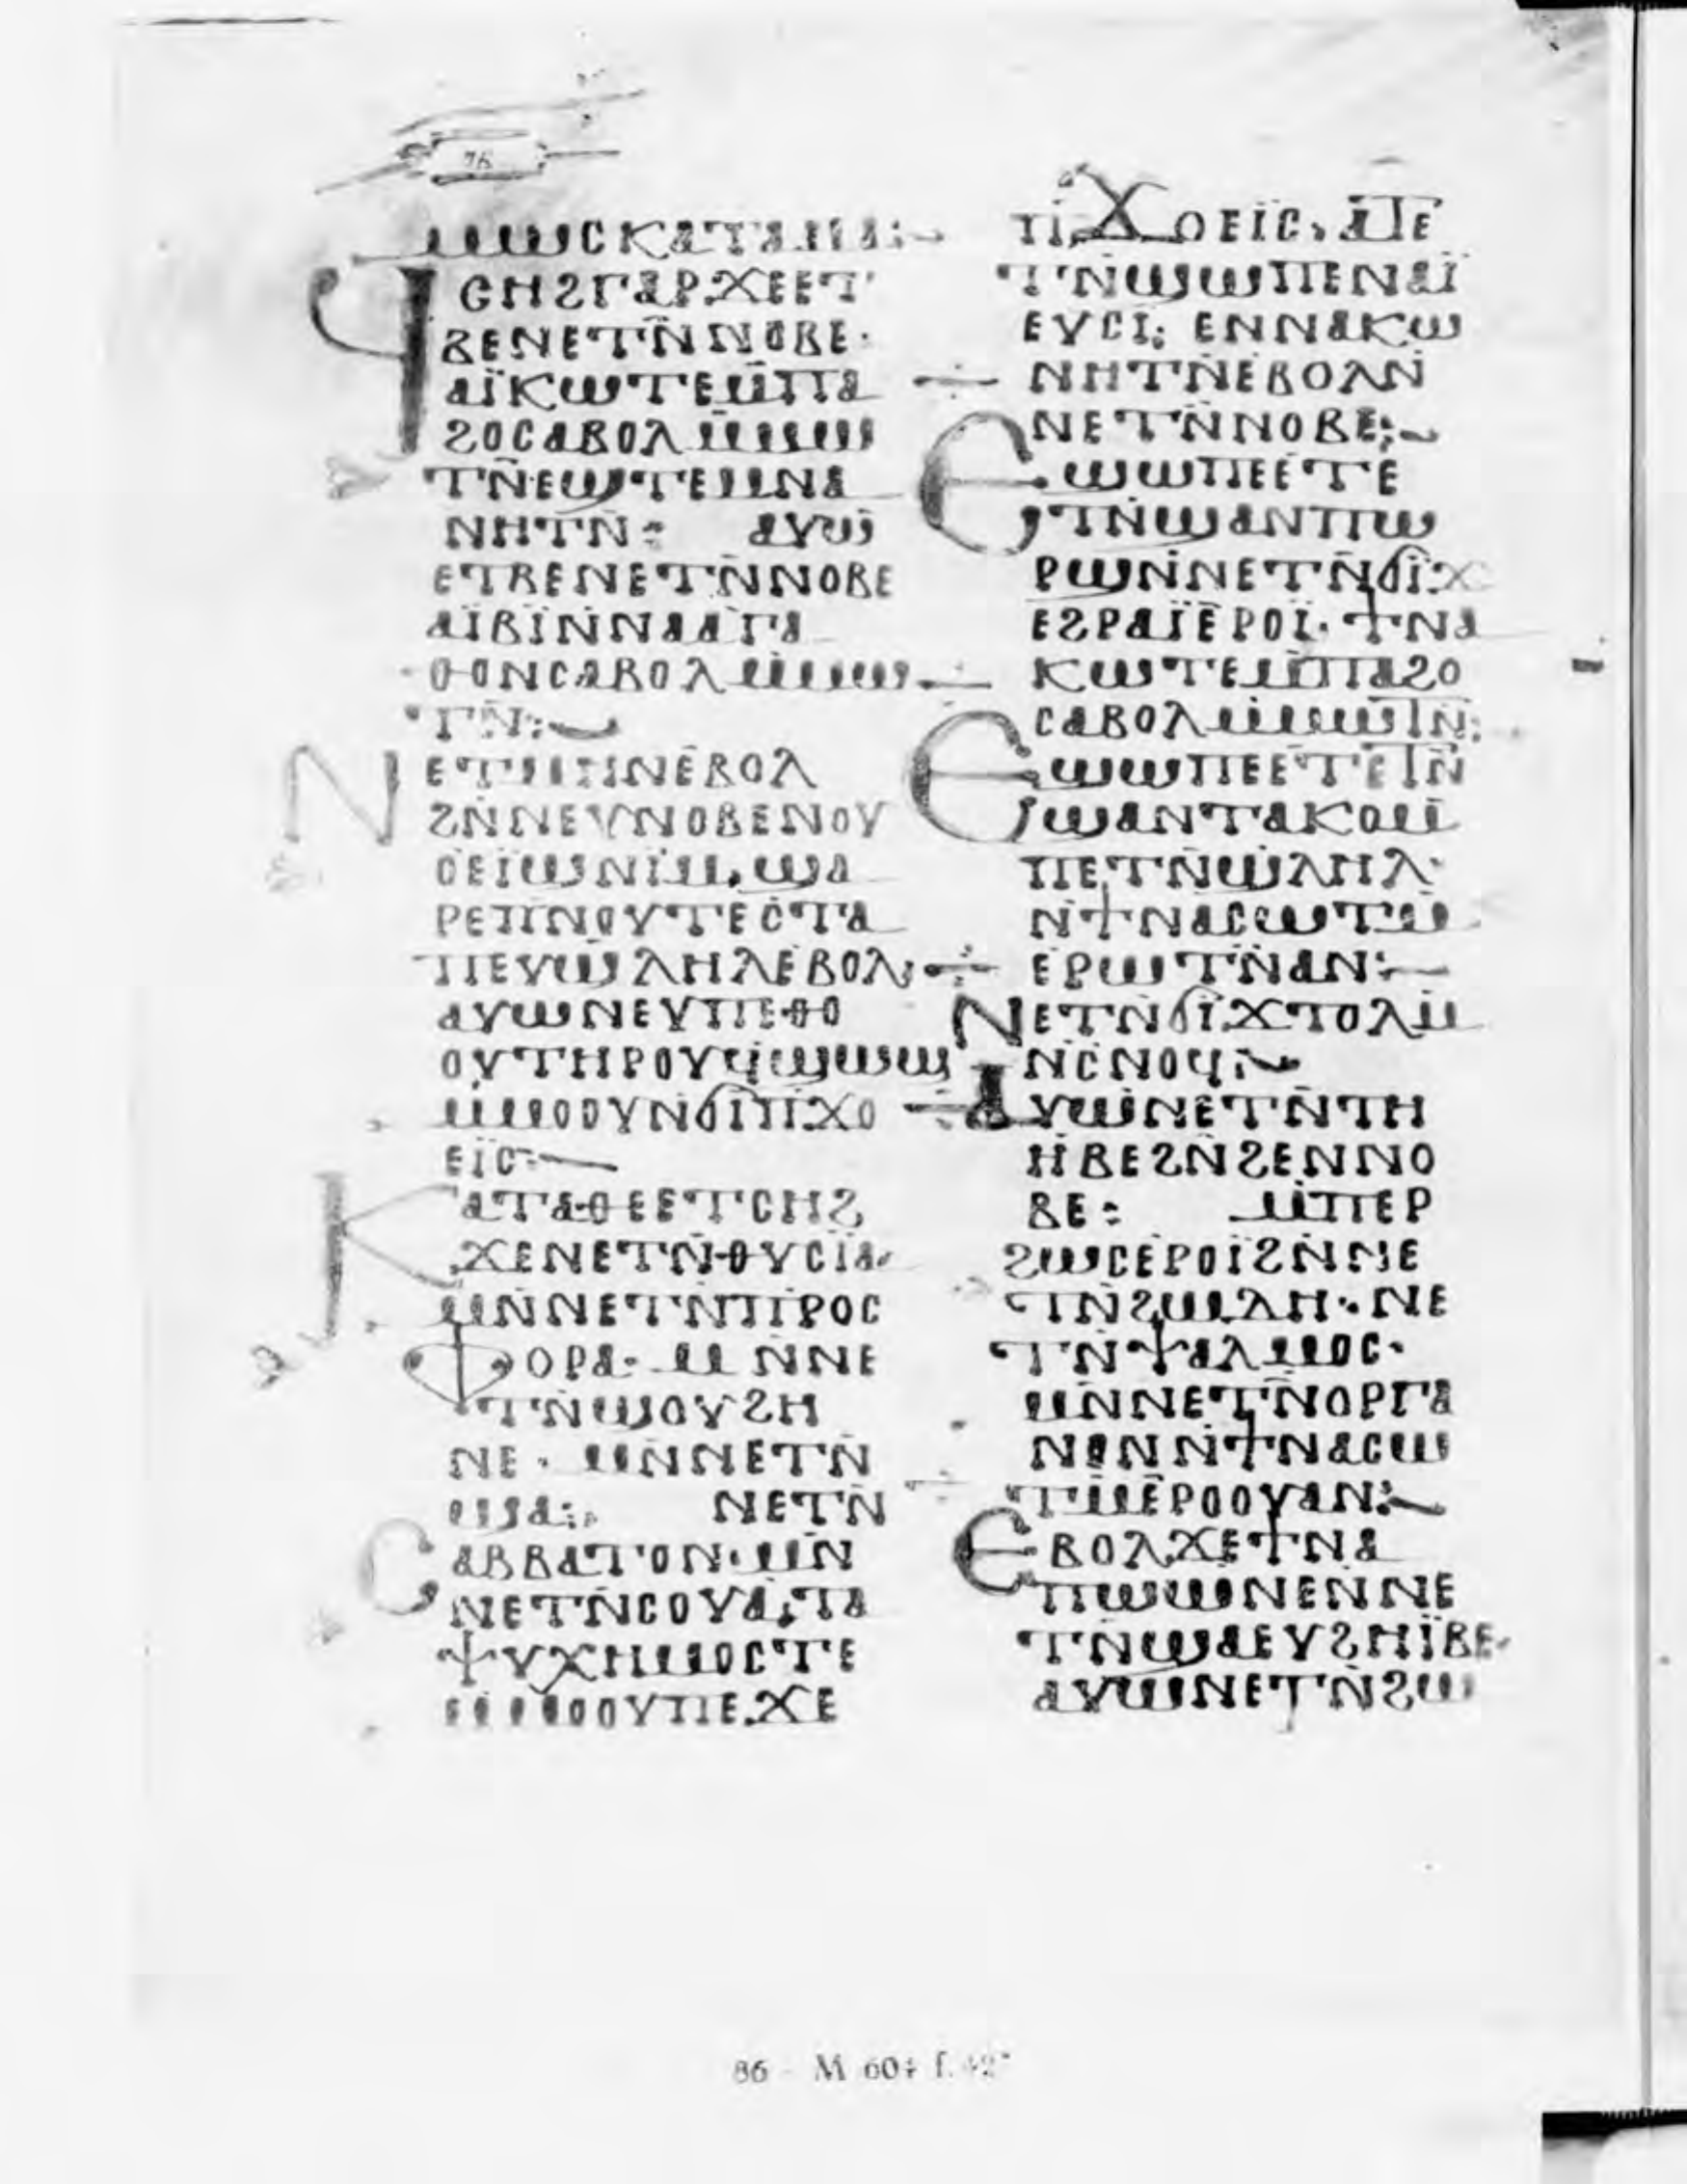 ⲙⲙⲱⲥⲕⲁⲧⲁⲛⲁⲓ:
ϥⲥⲏϩⲅⲁⲣϫⲉⲉⲧ
ⲃⲉⲛⲉⲧⲛ̄ⲛⲟⲃⲉ·
ⲁⲓ̈ⲕⲱⲧⲉⲙ̄ⲡⲁ
ϩⲟⲥⲁⲃⲟⲗⲙ̄ⲙⲱ
ⲧⲛ̄ⲉϣⲧⲉⲙⲛⲁ
ⲛⲏⲧⲛ̄: ⲁⲩⲱ
ⲉⲧⲃⲉⲛⲉⲧⲛ̄ⲛⲟⲃⲉ
ⲁⲓ̈ϥⲓ̈ⲛ̄ⲛⲁⲁⲅⲁ
ⲑⲟⲛⲥⲁⲃⲟⲗⲙ̄ⲙⲱ
ⲧⲛ̄:
ⲛⲉⲧⲙⲏⲛⲉⲃⲟⲗ
ϩⲛ̄ⲛⲉⲩⲛⲟⲃⲉⲛⲟⲩ
ⲟⲉⲓ̈ϣⲛⲓⲙ. ϣⲁ
ⲣⲉⲡⲛⲟⲩⲧⲉⲥⲧⲁ
ⲡⲉⲩϣⲗⲏⲗⲉⲃⲟⲗ:
ⲁⲩⲱⲛⲉⲩⲡⲉⲑⲟ
ⲟⲩⲧⲏⲣⲟⲩϥϣⲱϣ
ⲙ̄ⲙⲟⲟⲩⲛ̄ϭⲓⲡϫⲟ
ⲉⲓ̈ⲥ:
ⲕⲁⲧⲁⲑⲉⲉⲧⲥⲏϩ
ϫⲉⲛⲉⲧⲛ̄ⲑⲩⲥⲓ̈ⲁ·
ⲙⲛ̄ⲛⲉⲧⲛ̄ⲡⲣⲟⲥ
ⲫⲟⲣⲁ· ⲙⲛ̄ⲛⲉ
ⲧⲛ̄ϣⲟⲩϩⲏ
ⲛⲉ· ⲙⲛ̄ⲛⲉⲧⲛ̄
ϣⲁ: ⲛⲉⲧⲛ̄
ⲥⲁⲃⲃⲁⲧⲟⲛ·ⲙⲛ̄
ⲛⲉⲧⲛ̄ⲥⲟⲩⲁ·ⲧⲁ
ⲯⲩⲭⲏⲙⲟⲥⲧⲉ
ⲙ̄ⲙⲟⲟⲩⲡⲉϫⲉ
ⲡϫⲟⲉⲓ̈ⲥ·ⲁⲧⲉ
ⲧⲛ̄ϣⲱⲡⲉⲛⲁⲓ̈
ⲉⲩⲥⲓ: ⲉⲛⲛⲁⲕⲱ
ⲛⲏⲧⲛ̄ⲉⲃⲟⲗⲛ̄
ⲛⲉⲧⲛ̄ⲛⲟⲃⲉ:
ⲉϣⲱⲡⲉⲉⲧⲉ
ⲧⲛ̄ϣⲁⲛⲡⲱ
ⲣϣⲛ̄ⲛⲉⲧⲛ̄ϭⲓϫ
ⲉϩⲣⲁⲓ̈ⲉⲣⲟⲓ̈·ϯⲛⲁ
ⲕⲱⲧⲉⲙ̄ⲡⲁϩⲟ
ⲥⲁⲃⲟⲗⲙ̄ⲙⲱⲧⲛ̄:
ⲉϣⲱⲡⲉⲉⲧⲉⲧⲛ̄
ϣⲁⲛⲧⲁⲕⲟⲙ̄
ⲡⲉⲧⲛ̄ϣⲗⲏⲗ·
ⲛ̄ϯⲛⲁⲥⲱⲧⲙ̄
ⲉⲣⲱⲧⲛ̄ⲁⲛ:
ⲛⲉⲧⲛ̄ϭⲓϫⲧⲟⲗⲙ̄
ⲛ̄ⲥⲛⲟϥ:
ⲁⲩⲱⲛⲉⲧⲛ̄ⲧⲏ
ⲏⲃⲉϩⲛ̄ϩⲉⲛⲛⲟ
ⲃⲉ: ⲙ̄ⲡⲉⲣ
ϩⲱⲥⲉⲣⲟⲓ̈ϩⲛ̄ⲛⲉ
ⲧⲛ̄ϩⲱⲇⲏ·ⲛⲉ
ⲧⲛ̄ⲯⲁⲗⲙⲟⲥ·
ⲙⲛ̄ⲛⲉⲧⲛ̄ⲟⲣⲅⲁ
ⲛⲟⲛⲛ̄ϯⲛⲁⲥⲱ
ⲧⲙⲉⲣⲟⲟⲩⲁⲛ:
ⲉⲃⲟⲗϫⲉϯⲛⲁ
ⲡⲱⲱⲛⲉⲛ̄ⲛⲉ
ⲧⲛ̄ϣⲁⲉⲩϩⲏⲓ̈ⲃⲉ·
ⲁⲩⲱⲛⲉⲧⲛ̄ϩⲱ
86 - M 604 f. 42ᵛ